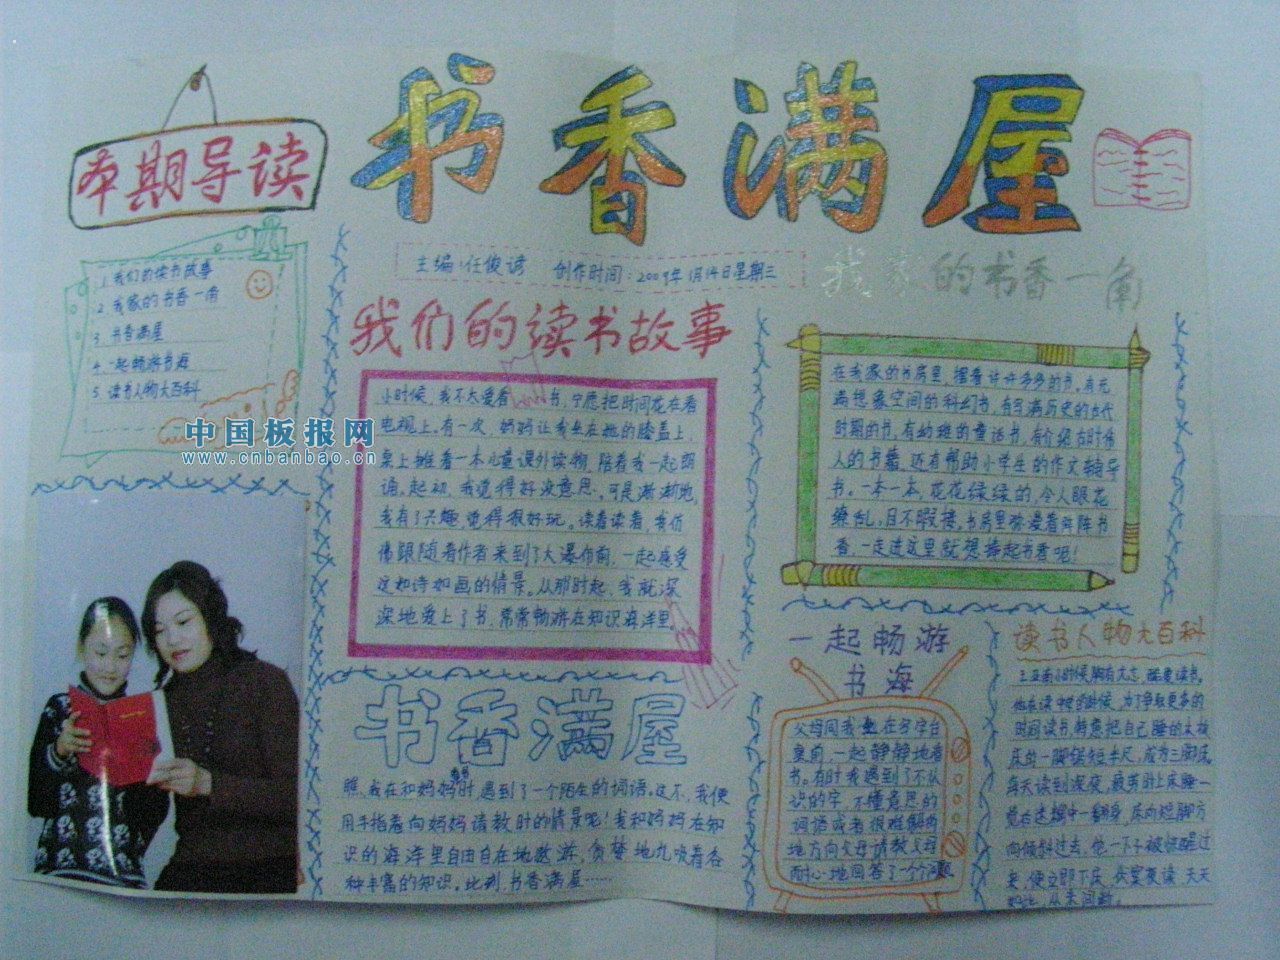 书香满屋
本期导读
1.我们的读书故事
2.我家的书香一角
3.书香满屋
4.一起畅游书海
5.读书人物大百科
中国板报网
www.cnbanbao.cn
主编:任俊谚 创作时间:2009年1月14日星期三
我们的读书故事
小时候,我不太爱看书,宁愿把时间花在看
电视上。有一次,妈妈让我坐在她的膝盖上,
桌上摊着一本儿童课外读物,陪着我一起朗
诵。起初,我觉得好没意思。可是渐渐地,
我有了兴趣,觉得很好玩。读着读着,我仿
佛跟随着作者来到了大瀑布前,一起感受
这如诗如画的情景。从那时起,我就深
深地爱上了书,常常畅游在知识海洋里。
我家的书香一角
在我家的书房里,摆着许许多多的书。有充
满想象空间的科幻书,有写满历史的古代
时期的书,有幼稚的童话书,有介绍古时伟
人的书籍,还有帮助小学生的作文辅导
书。一本一本,花花绿绿的,令人眼花
缭乱,目不暇接。书房里弥漫着阵阵书
香,一走进这里就想捧起书看呢!
书香满屋
瞧,我在和妈妈看书时,遇到了一个陌生的词语。这不,我便
用手指着向妈妈请教时的情景呢!我和妈妈在知
识的海洋里自由自在地遨游,贪婪地九吸着各
种丰富的知识。此刻,书香满屋……
一起畅游
书海
父母同我坐在写字台
桌前,一起静静地看
书。有时我遇到了不认
识的字,不懂意思的
词语或者很难解的
地方向父母请教,父母
耐心地回答了一个个问题
读书人物大百科
王亚南小时候胸有大志,酷爱读书。
他在读中学的时候,为了争取更多的
时间读书,特意把自己睡的木板
床的一脚锯短半尺,成为三脚床。
每天读到深夜,疲劳时上床睡一
觉在迷糊中一翻身,床向短脚方
向倾斜过去,他一下子被惊醒过
来,便立即下床,伏案夜读,天天
如此,从未间断。